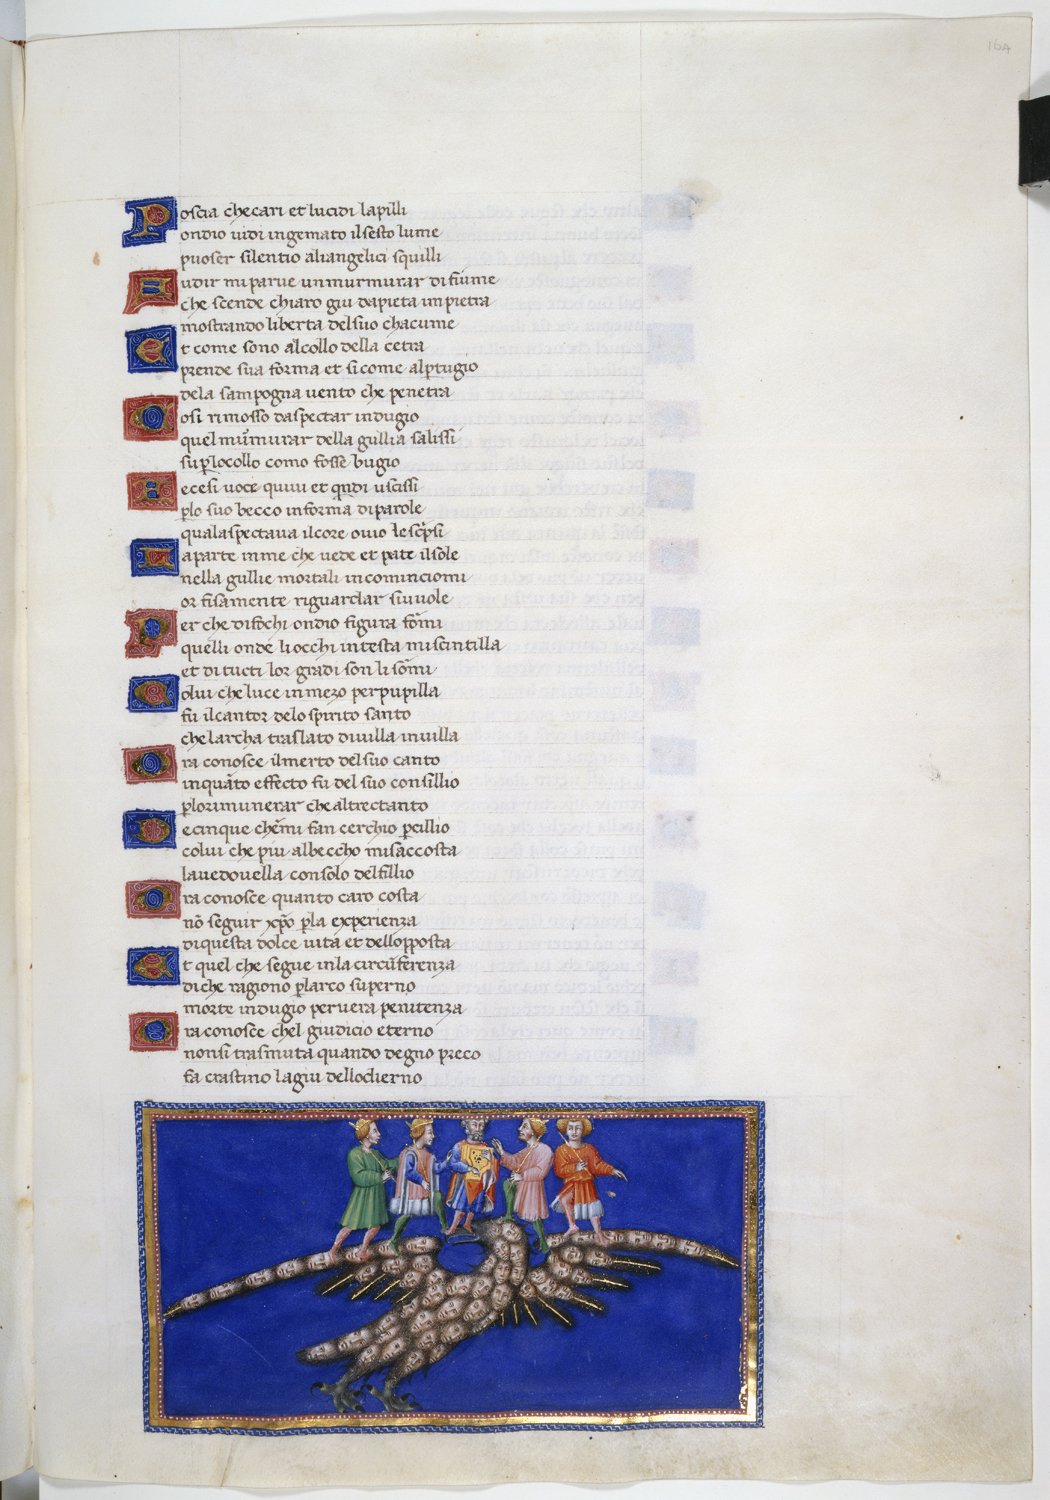 164
Poscia che cari et lucidi lapilli
ondio vidi ingemato il sesto lume
puoser silentio aliangelici squilli
Udir mi parve un murmurar di fiume
che scende chiaro giu dapieta impietra
mostrando liberta del suo chacume
Et come sono al collo della cetra
prende sua forma et si come alptugio
dela sampogna vento che penetra
Cosi rimosso daspectar indugio
quel murmurar della gullia salissi
su plo collo como fosse bugio
Fecesi voce quivi et qndi uscissi
plo suo becco in forma di parole
qual aspectava il core ovio le scpsi
La parte in me che vede et pate il sole
nella gullie mortali incominciomi
or fisamente riguardar si vuole
Per che di fochi ondio figura fomi
quelli onde liocchi in testa mi scintilla
et di tucti lor gradi son li somi
Colui che luce in mezo per pupilla
fu il cantor delo spirito santo
che larcha traslato di villa in villa
Ora conosce il merto del suo canto
in quato effecto fu del suo consillio
plo rimunerar che altrectanto
De cinque che mi fan cerchio pcillio
colui che piu al beccho mi saccosta
la vedovella consolo del fillio
Ora conosce quanto caro costa
no seguir xpo pla experienza
di questa dolce vita et dellopposta
Et quel che segue in la circuferenza
di che ragiono plarco superno
morte indugio per vera penitenza
Ora conosce chel giudicio eterno
non si trasmuta quando degno preco
fa crastino la giu dellodierno